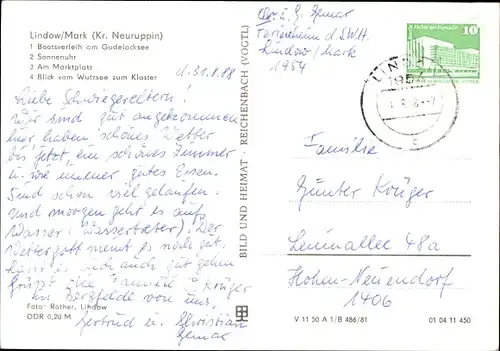 Lindow/Mark (Kr. Neuruppin)
1 Bootsverleih am Gudelacksee
2 Sonnenuhr
3 Am Marktplatz
4 Blick vom Wutzsee zum Kloster
d. 31.8.88
Liebe Schwiegereltern!
Wir sind gut angekommen
hier, haben schönes Wetter
bis jetzt, ein schönes Zimmer
u. wie immer gutes Essen.
Sind schon viel gelaufen
und morgen geht es auf
Wasser (Wassertreter). Der
Wettergott meint es noch gut.
Euch auch gut gehen
Grüßt Krüger
in Bergfelde von uns.
Gertrud u. Christian
Gemar
Foto: Rother, Lindow
DDR 0,20 M
BILD UND HEIMAT · REICHENBACH (VOGTL)
u. G. Gemar
Ferienheim d. SWH
Lindow/Mark
1954
10
LINDOW
195
c
Familie
Günter Krüger
Leinallee 48a
Hohen-Neuendorf
1406
V 11 50 A 1/B 486/81
01 04 11 450